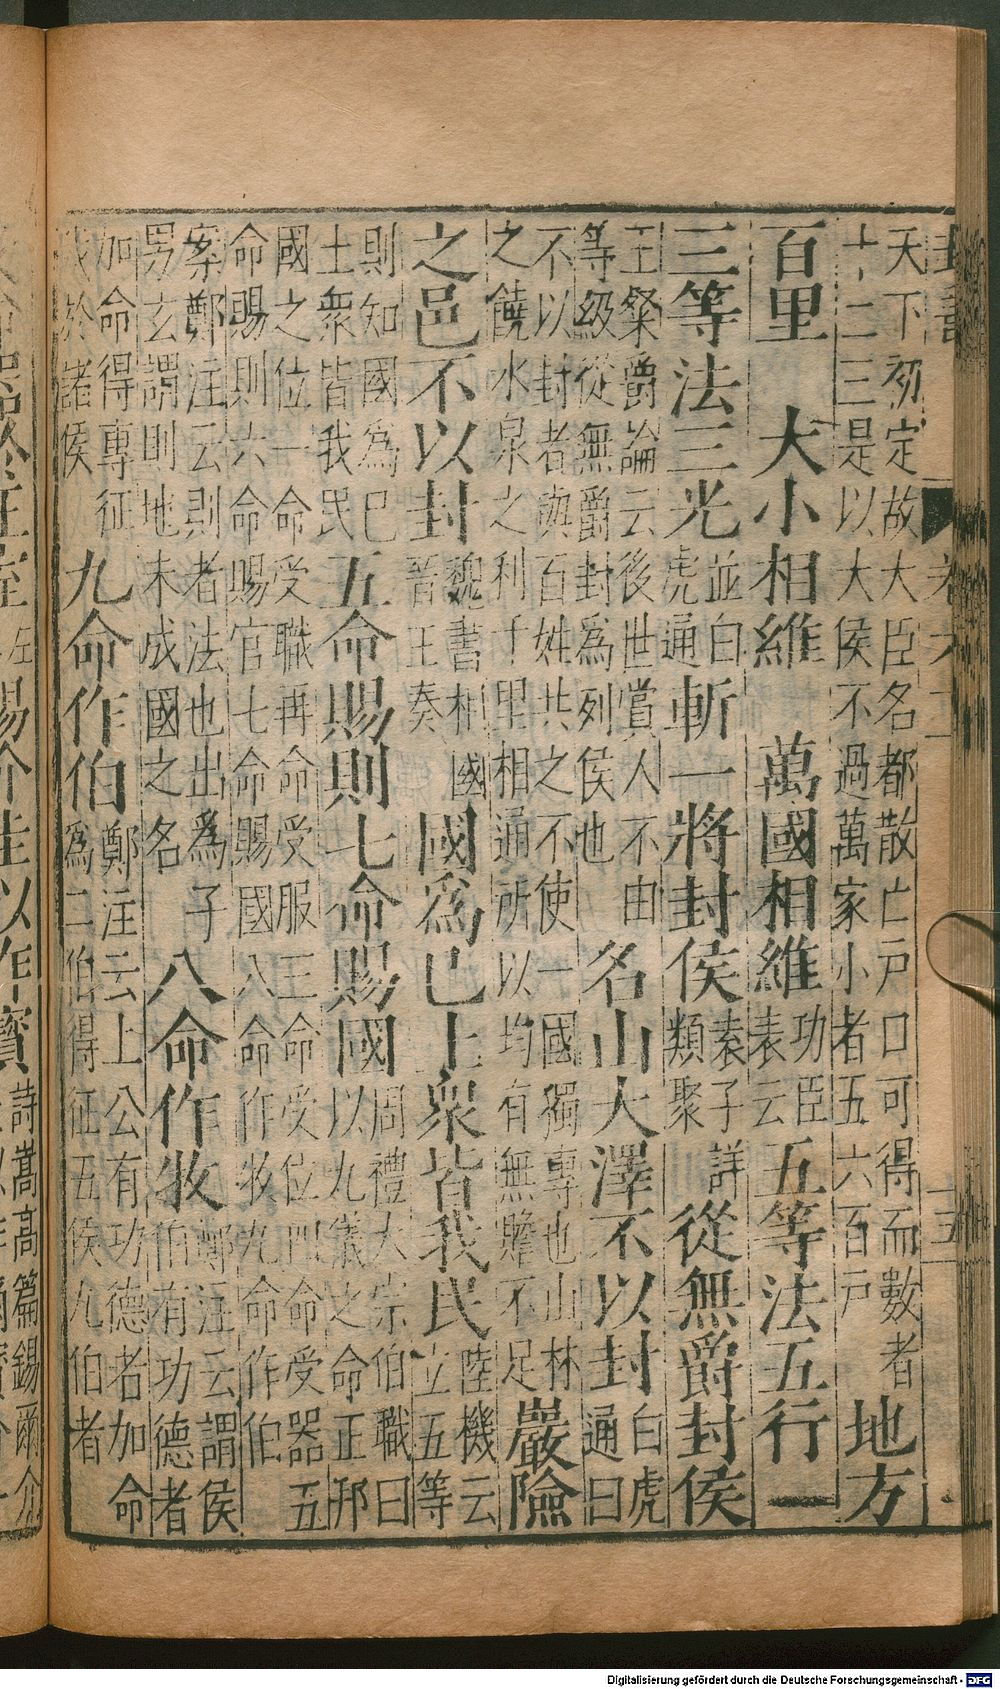 天下初定故大臣名都散亡戶口可得而數者
十二三是以大侯不過萬家小者五六百戶
地方
百里
大小相維
萬國相維
功臣
表云
五等法五行
三等法三光
並白
虎通
斬一將封侯
素子
類聚
詳
從無爵封侯
王粲爵論云後世賞人不由
等級從無爵封爲列侯也
名山大澤不以封
白虎
通曰
不以封者與百姓共之不使一國獨專也山林
之饒水泉之利千里相通所以均有無贍不足
嚴險
之邑不以封
魏書相國
晉王奏
國爲巳土衆皆我民
陸機云
立五等
則知國爲巳
土衆皆我民
五命賜則七命賜國
周禮大宗伯職曰
以九儀之命正邦
國之位一命受職再命受服三命受位四命受器五
命賜則六命賜官七命賜國八命作牧九命作伯
案鄭注云則者法也出爲子
男玄謂則地未成國之名
八命作牧
鄭注云謂侯
伯有功德者
加命得專征
伐於諸侯
九命作伯
鄭注云上公有功德者加命
爲二伯得征五侯九伯者